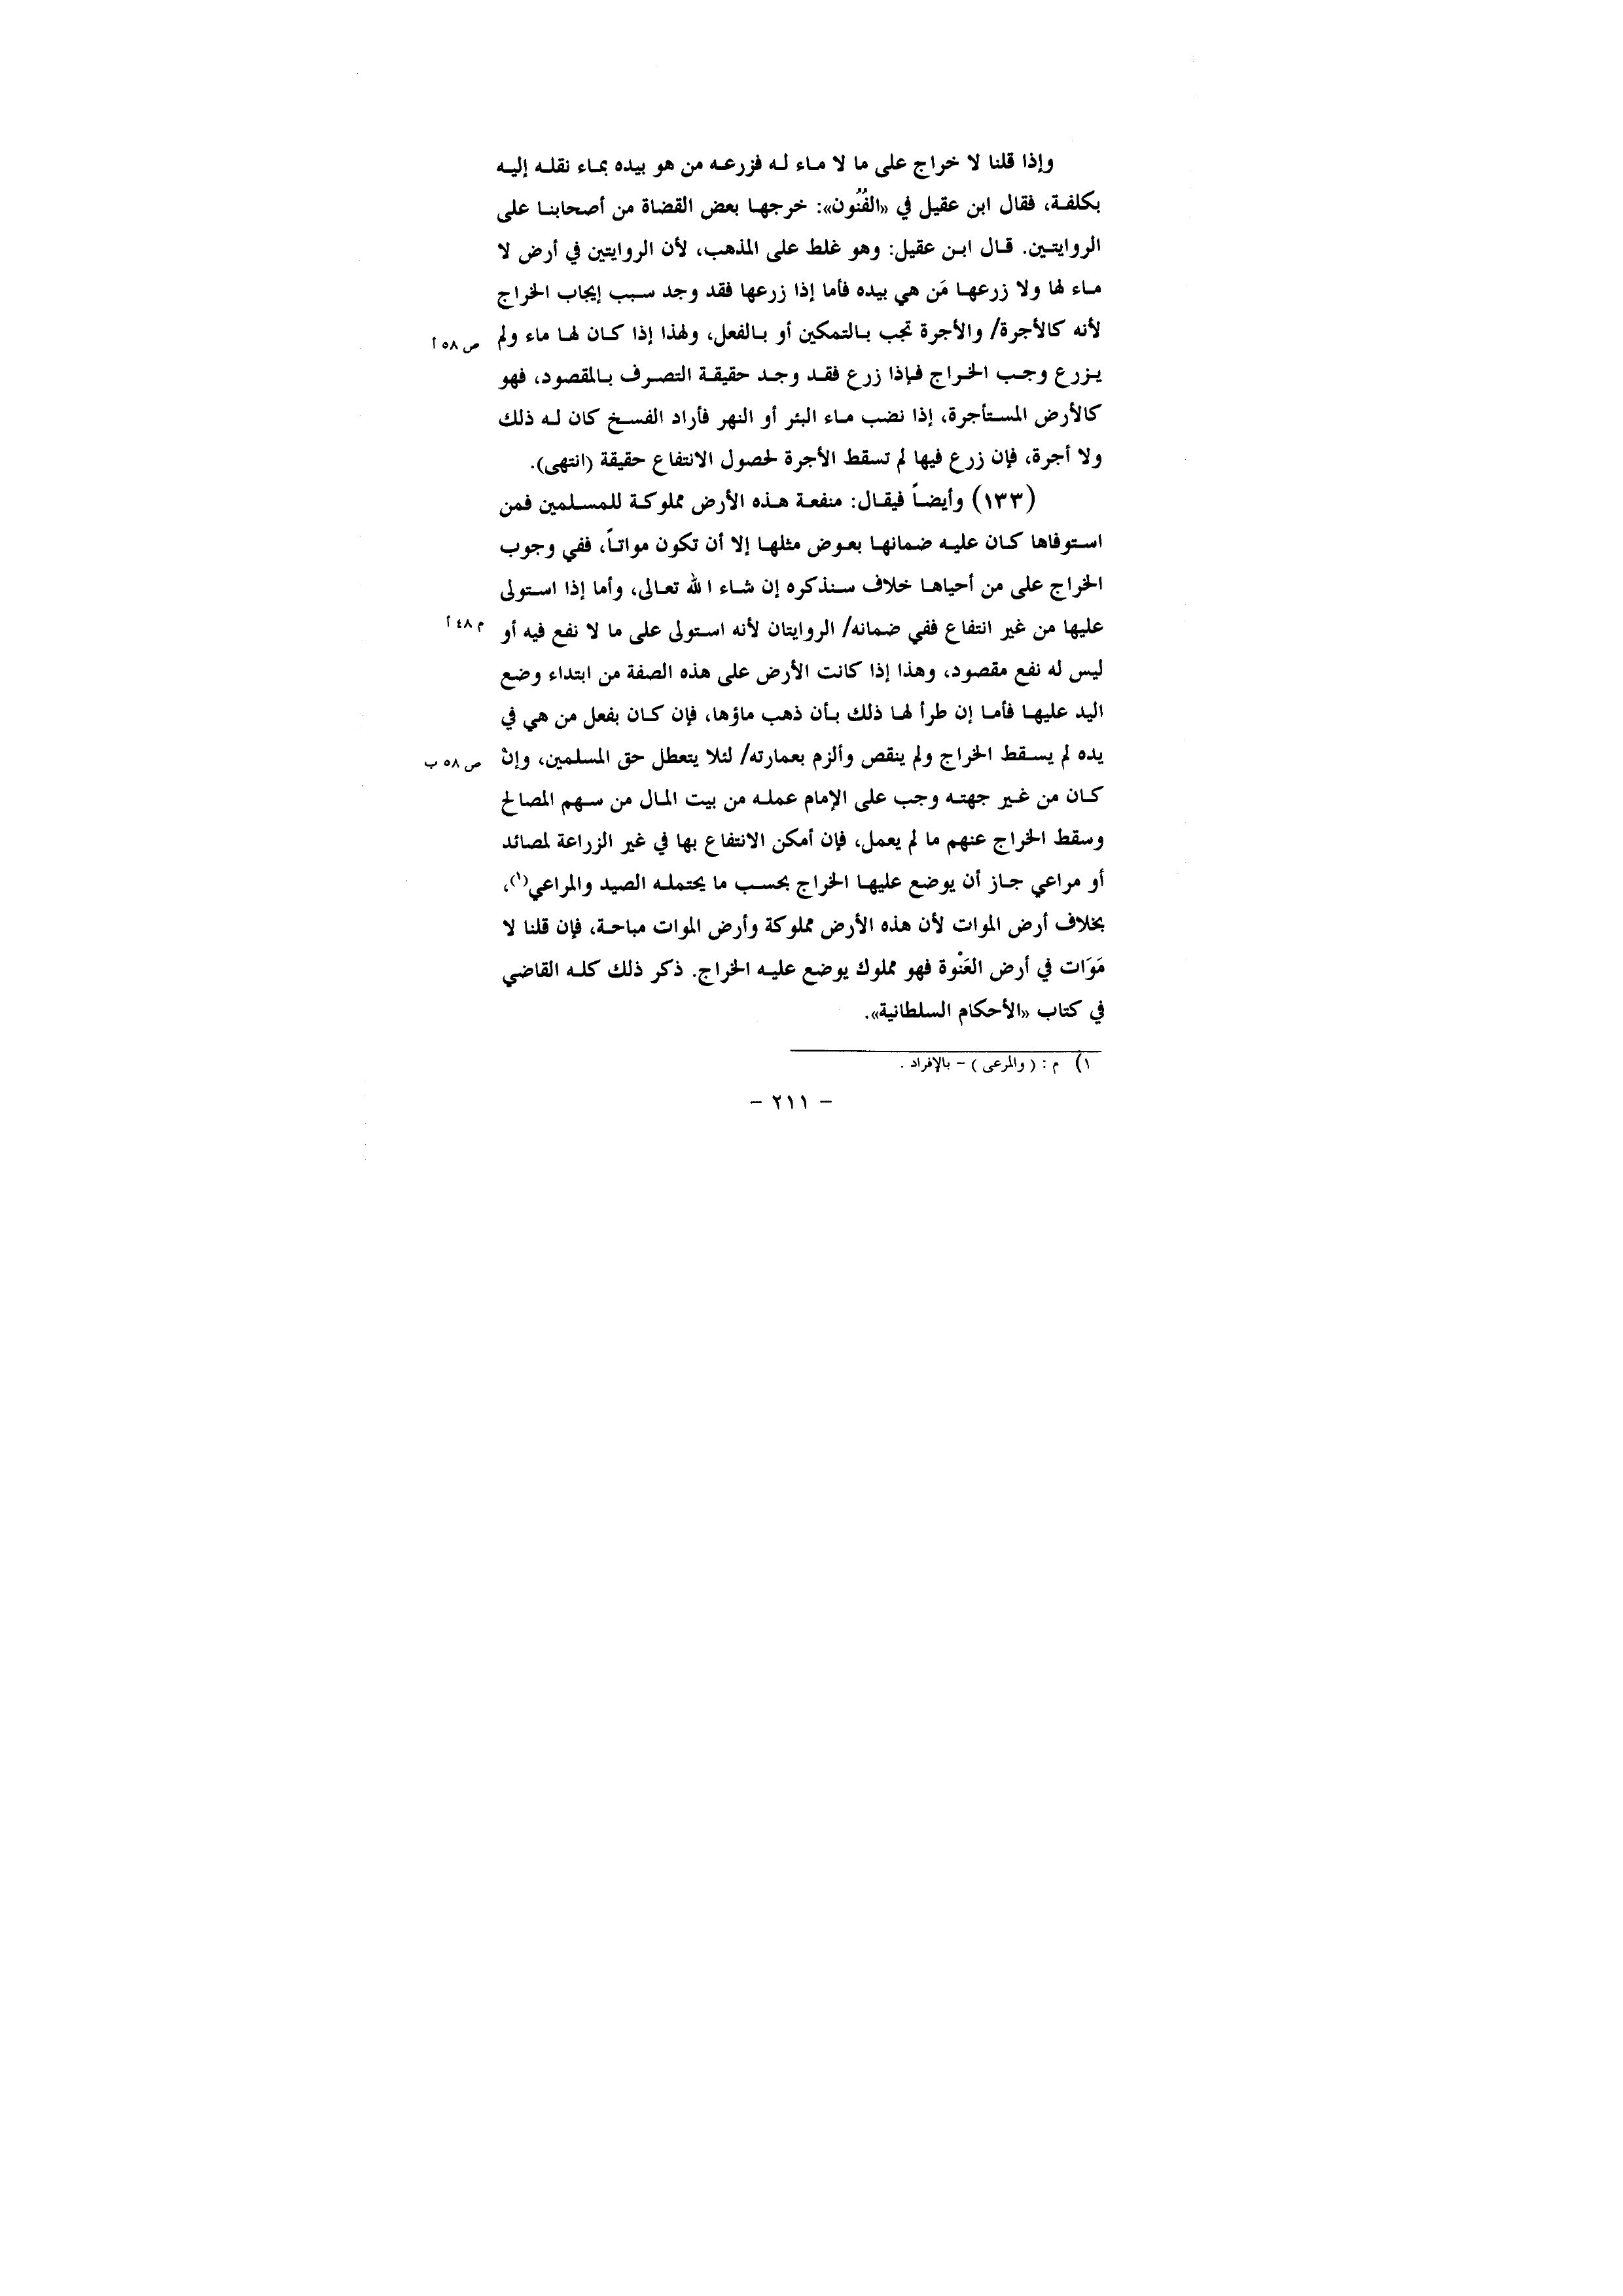 وإذا قلنا لا خراج على ما لا ماء له فزرعه من هو بيده بماء نقله إليه
بكلفة، فقال ابن عقيل في «الفُنُون»: خرجها بعض القضاة من أصحابنا على
الروايتين. قال ابن عقيل: وهو غلط على المذهب، لأن الروايتين في أرض لا
ماء لها ولا زرعها مَن هي بيده فأما إذا زرعها فقد وجد سبب إيجاب الخراج
لأنه كالأجرة/ والأجرة تجب بالتمكين أو بالفعل، ولهذا إذا كان لها ماء ولم
ص ٥٨ أ
يزرع وجب الخراج فإذا زرع فقد وجد حقيقة التصرف بالمقصود، فهو
كالأرض المستأجرة، إذا نضب ماء البئر أو النهر فأراد الفسخ كان له ذلك
ولا أجرة، فإن زرع فيها لم تسقط الأجرة لحصول الانتفاع حقيقة (انتهى).
(١٣٣) وأيضاً فيقال: منفعة هذه الأرض مملوكة للمسلمين فمن
استوفاها كان عليه ضمانها بعوض مثلها إلا أن تكون مواتاً، ففي وجوب
الخراج على من أحياها خلاف سنذكره إن شاء الله تعالى، وأما إذا استولى
عليها من غير انتفاع ففي ضمانه/ الروايتان لأنه استولى على ما لا نفع فيه أو
م ٤٨ أ
ليس له نفع مقصود، وهذا إذا كانت الأرض على هذه الصفة من ابتداء وضع
اليد عليها فأما إن طرأ لها ذلك بأن ذهب ماؤها، فإن كان بفعل من هي في
يده لم يسقط الخراج ولم ينقص وألزم بعمارته/ لئلا يتعطل حق المسلمين، وإنْ
ص ٥٨ ب
كان من غير جهته وجب على الإمام عمله من بيت المال من سهم المصالح
وسقط الخراج عنهم ما لم يعمل، فإن أمكن الانتفاع بها في غير الزراعة لمصائد
أو مراعي جاز أن يوضع عليها الخراج بحسب ما يحتمله الصيد والمراعي(١)،
بخلاف أرض الموات لأن هذه الأرض مملوكة وأرض الموات مباحة، فإن قلنا لا
مَوَات في أرض العَنْوة فهو مملوك يوضع عليه الخراج. ذكر ذلك كله القاضي
في كتاب «الأحكام السلطانية».
١) م : ( والمرعى ) – بالإفراد .
– ٢١١ –